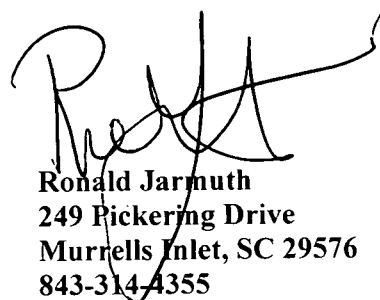 Ronald Jarmuth
249 Pickering Drive
Murrells Inlet, SC 29576
843-314-4355